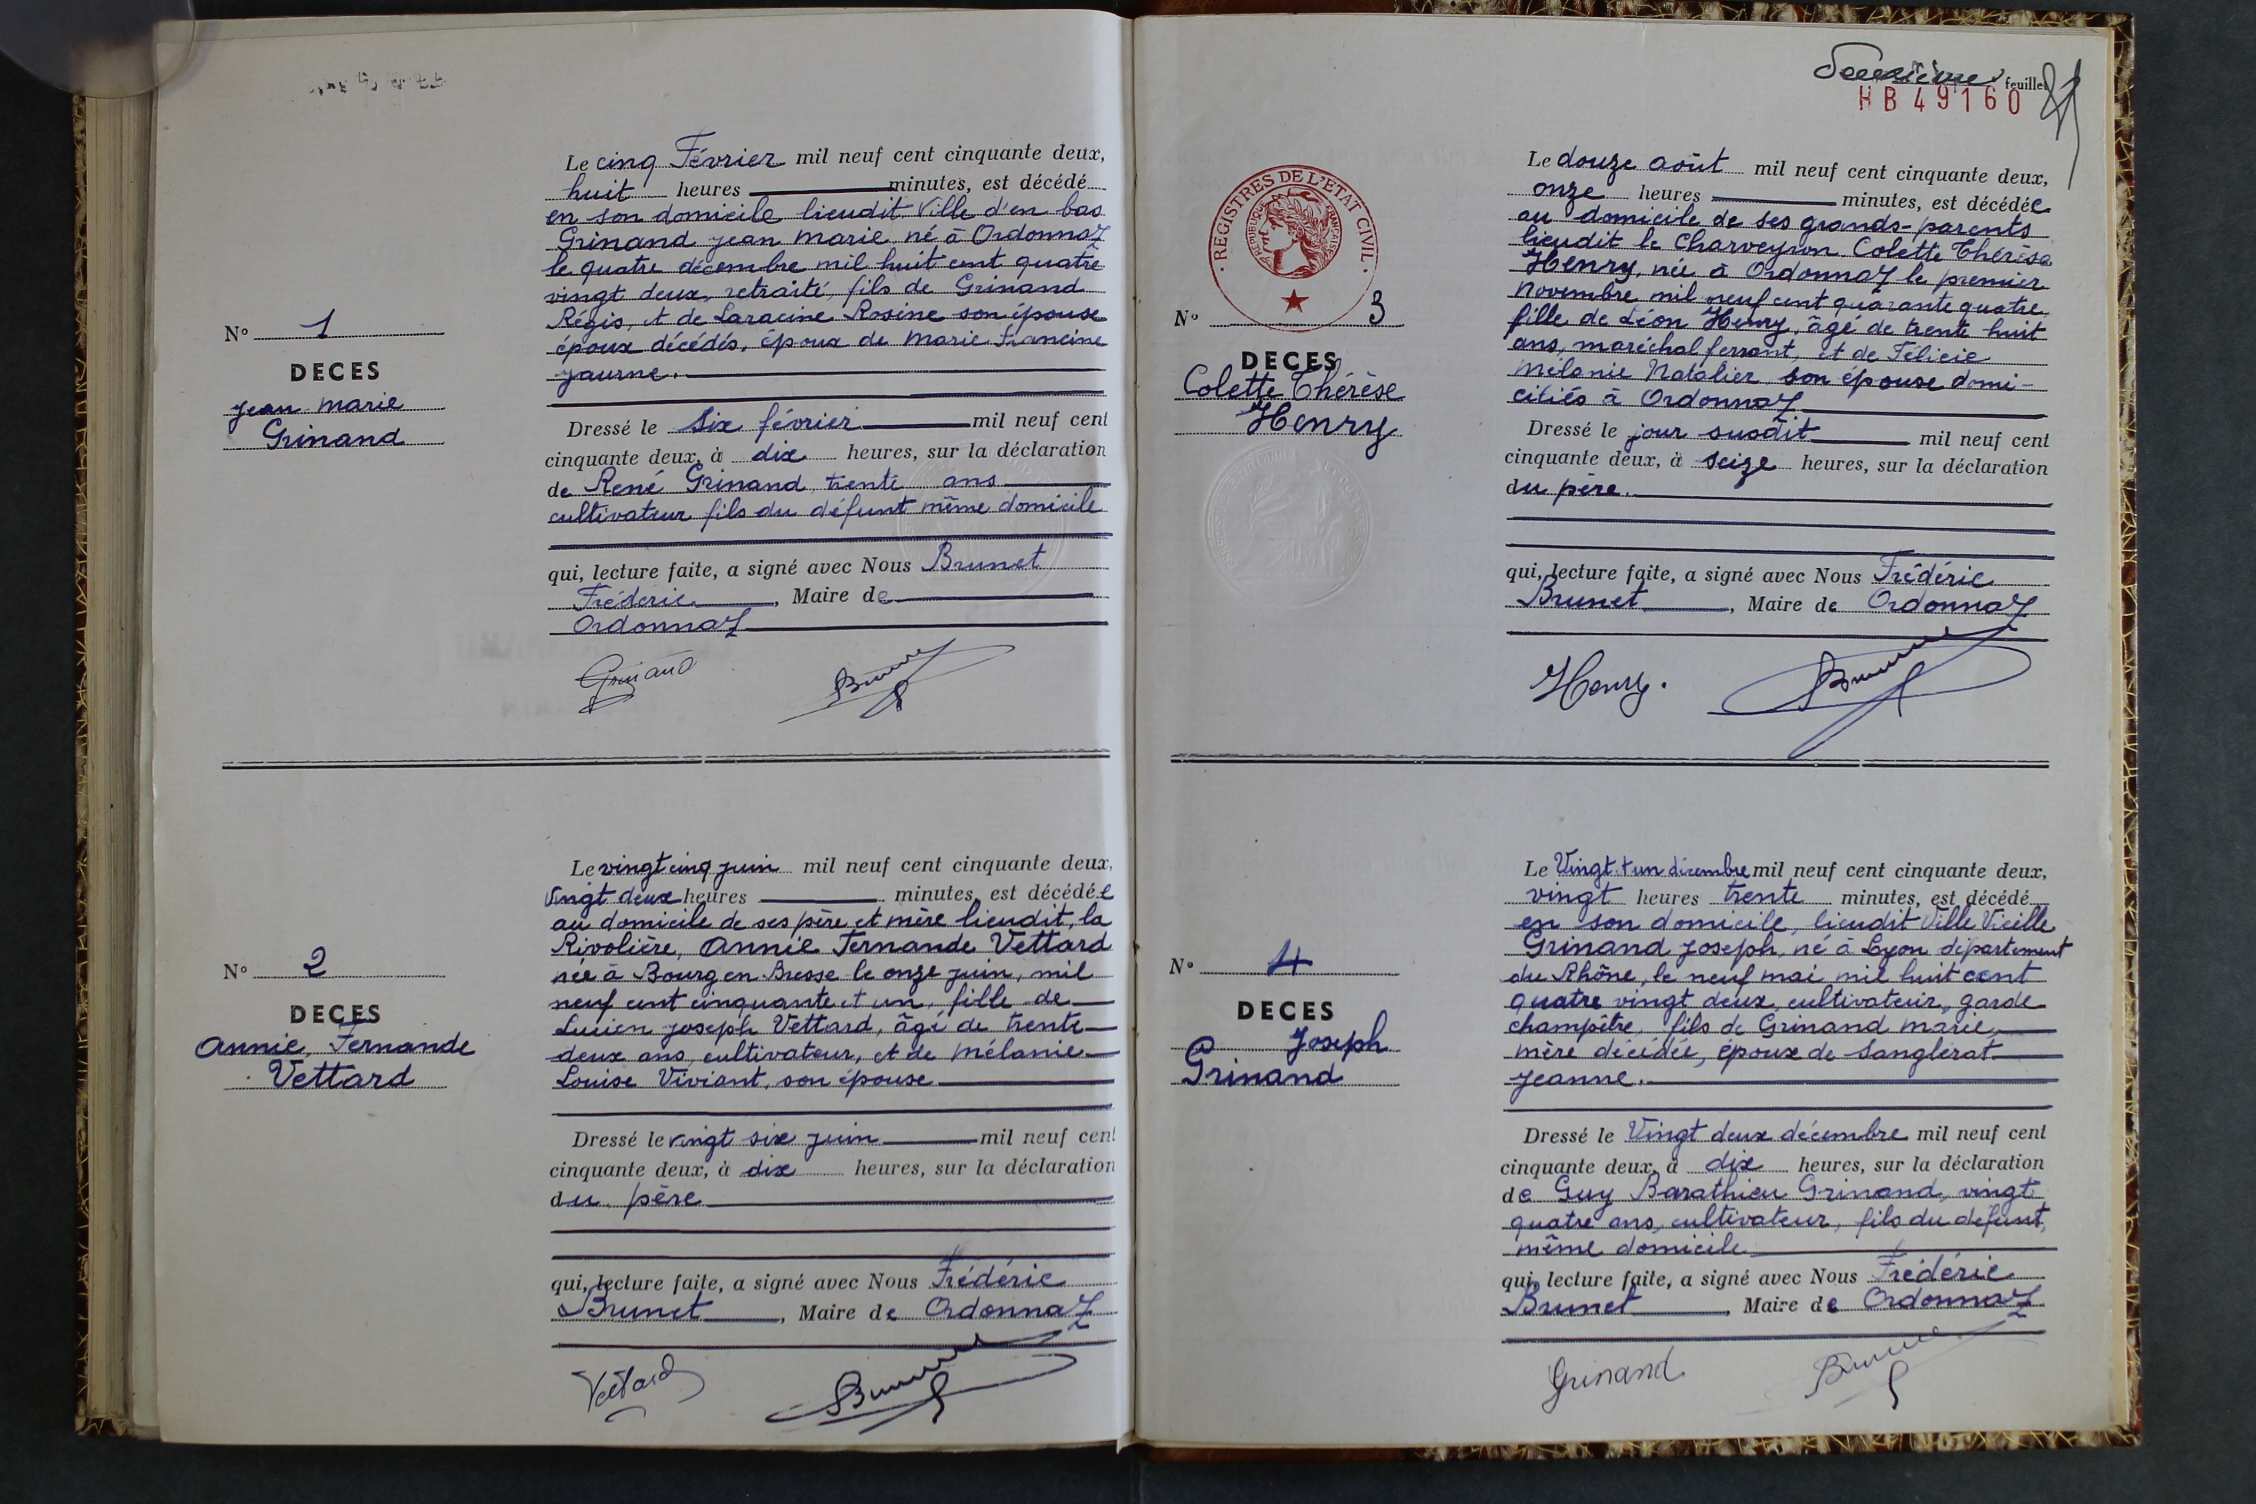 Le cinq Février mil neuf cent cinquante deux,
huit heures minutes, est décédé
en son domicile lieudit Ville d'en bas
Grinand Jean Marie né à Ordonnaz
le quatre décembre mil huit cent quatre
vingt deux, retraité, fils de Grinand
Régis, et de Laracine Rosine son épouse
époux décédés, époux de Marie Francine
Jaurne.
N° 1
DECES
Jean Marie
Grinand
Dressé le six février mil neuf cent
cinquante deux, à dix heures, sur la déclaration
de René Grinand trente ans
cultivateur fils du défunt même domicile
qui, lecture faite, a signé avec Nous Brunet
Fréderic, Maire de
Ordonnaz
Grinand Brunet
Le vingt cinq juin mil neuf cent cinquante deux,
vingt deux heures minutes, est décédée
au domicile de ses père et mère lieudit, la
Rivolière, Annie Fernande Vettard
née à Bourg en Bresse le onze juin, mil
neuf cent cinquante et un, fille de
Lucien Joseph Vettard, âgé de trente
deux ans, cultivateur, et de Mélanie
Louise Viviant, son épouse
N° 2
DECES
Annie, Fernande
Vettard
Dressé le vingt six juin mil neuf cent
cinquante deux, à dix heures, sur la déclaration
du père
qui, lecture faite, a signé avec Nous Frédéric
Brunet, Maire de Ordonnaz
Vettard Brunet
Deuxième feuillet
HB49160
REGISTRES DE L'ETAT CIVIL
REPUBLIQUE FRANÇAISE
Le douze août mil neuf cent cinquante deux,
onze heures minutes, est décédée
au domicile de ses grands-parents
lieudit le Charveyron Colette Thérèse
Henry, née à Ordonnaz le premier
Novembre mil neuf cent quarante quatre
fille de Léon Henry, âgé de trente huit
ans, maréchal ferrant, et de Félicie
Mélanie Natalier son épouse domi-
ciliés à Ordonnaz
N° 3
DECES
Colette Thérèse
Henry
Dressé le jour susdit mil neuf cent
cinquante deux, à seize heures, sur la déclaration
du père.
qui, lecture faite, a signé avec Nous Frédéric
Brunet, Maire de Ordonnaz
Henry. Brunet
Le Vingt t un décembre mil neuf cent cinquante deux,
vingt heures trente minutes, est décédé
en son domicile, lieudit Ville Vieille
Grinand Joseph, né à Lyon département
du Rhône, le neuf mai mil huit cent
quatre vingt deux, cultivateur, garde
champêtre, fils de Grinand Marie,
mère décédée, époux de Sanglerat
Jeanne.
N° 4
DECES
Joseph
Grinand
Dressé le Vingt deux décembre mil neuf cent
cinquante deux, à dix heures, sur la déclaration
de Guy Barathieu Grinand, vingt
quatre ans, cultivateur, fils du defunt,
même domicile
qui, lecture faite, a signé avec Nous Frédéric
Brunet, Maire de Ordonnaz
Grinand Brunet